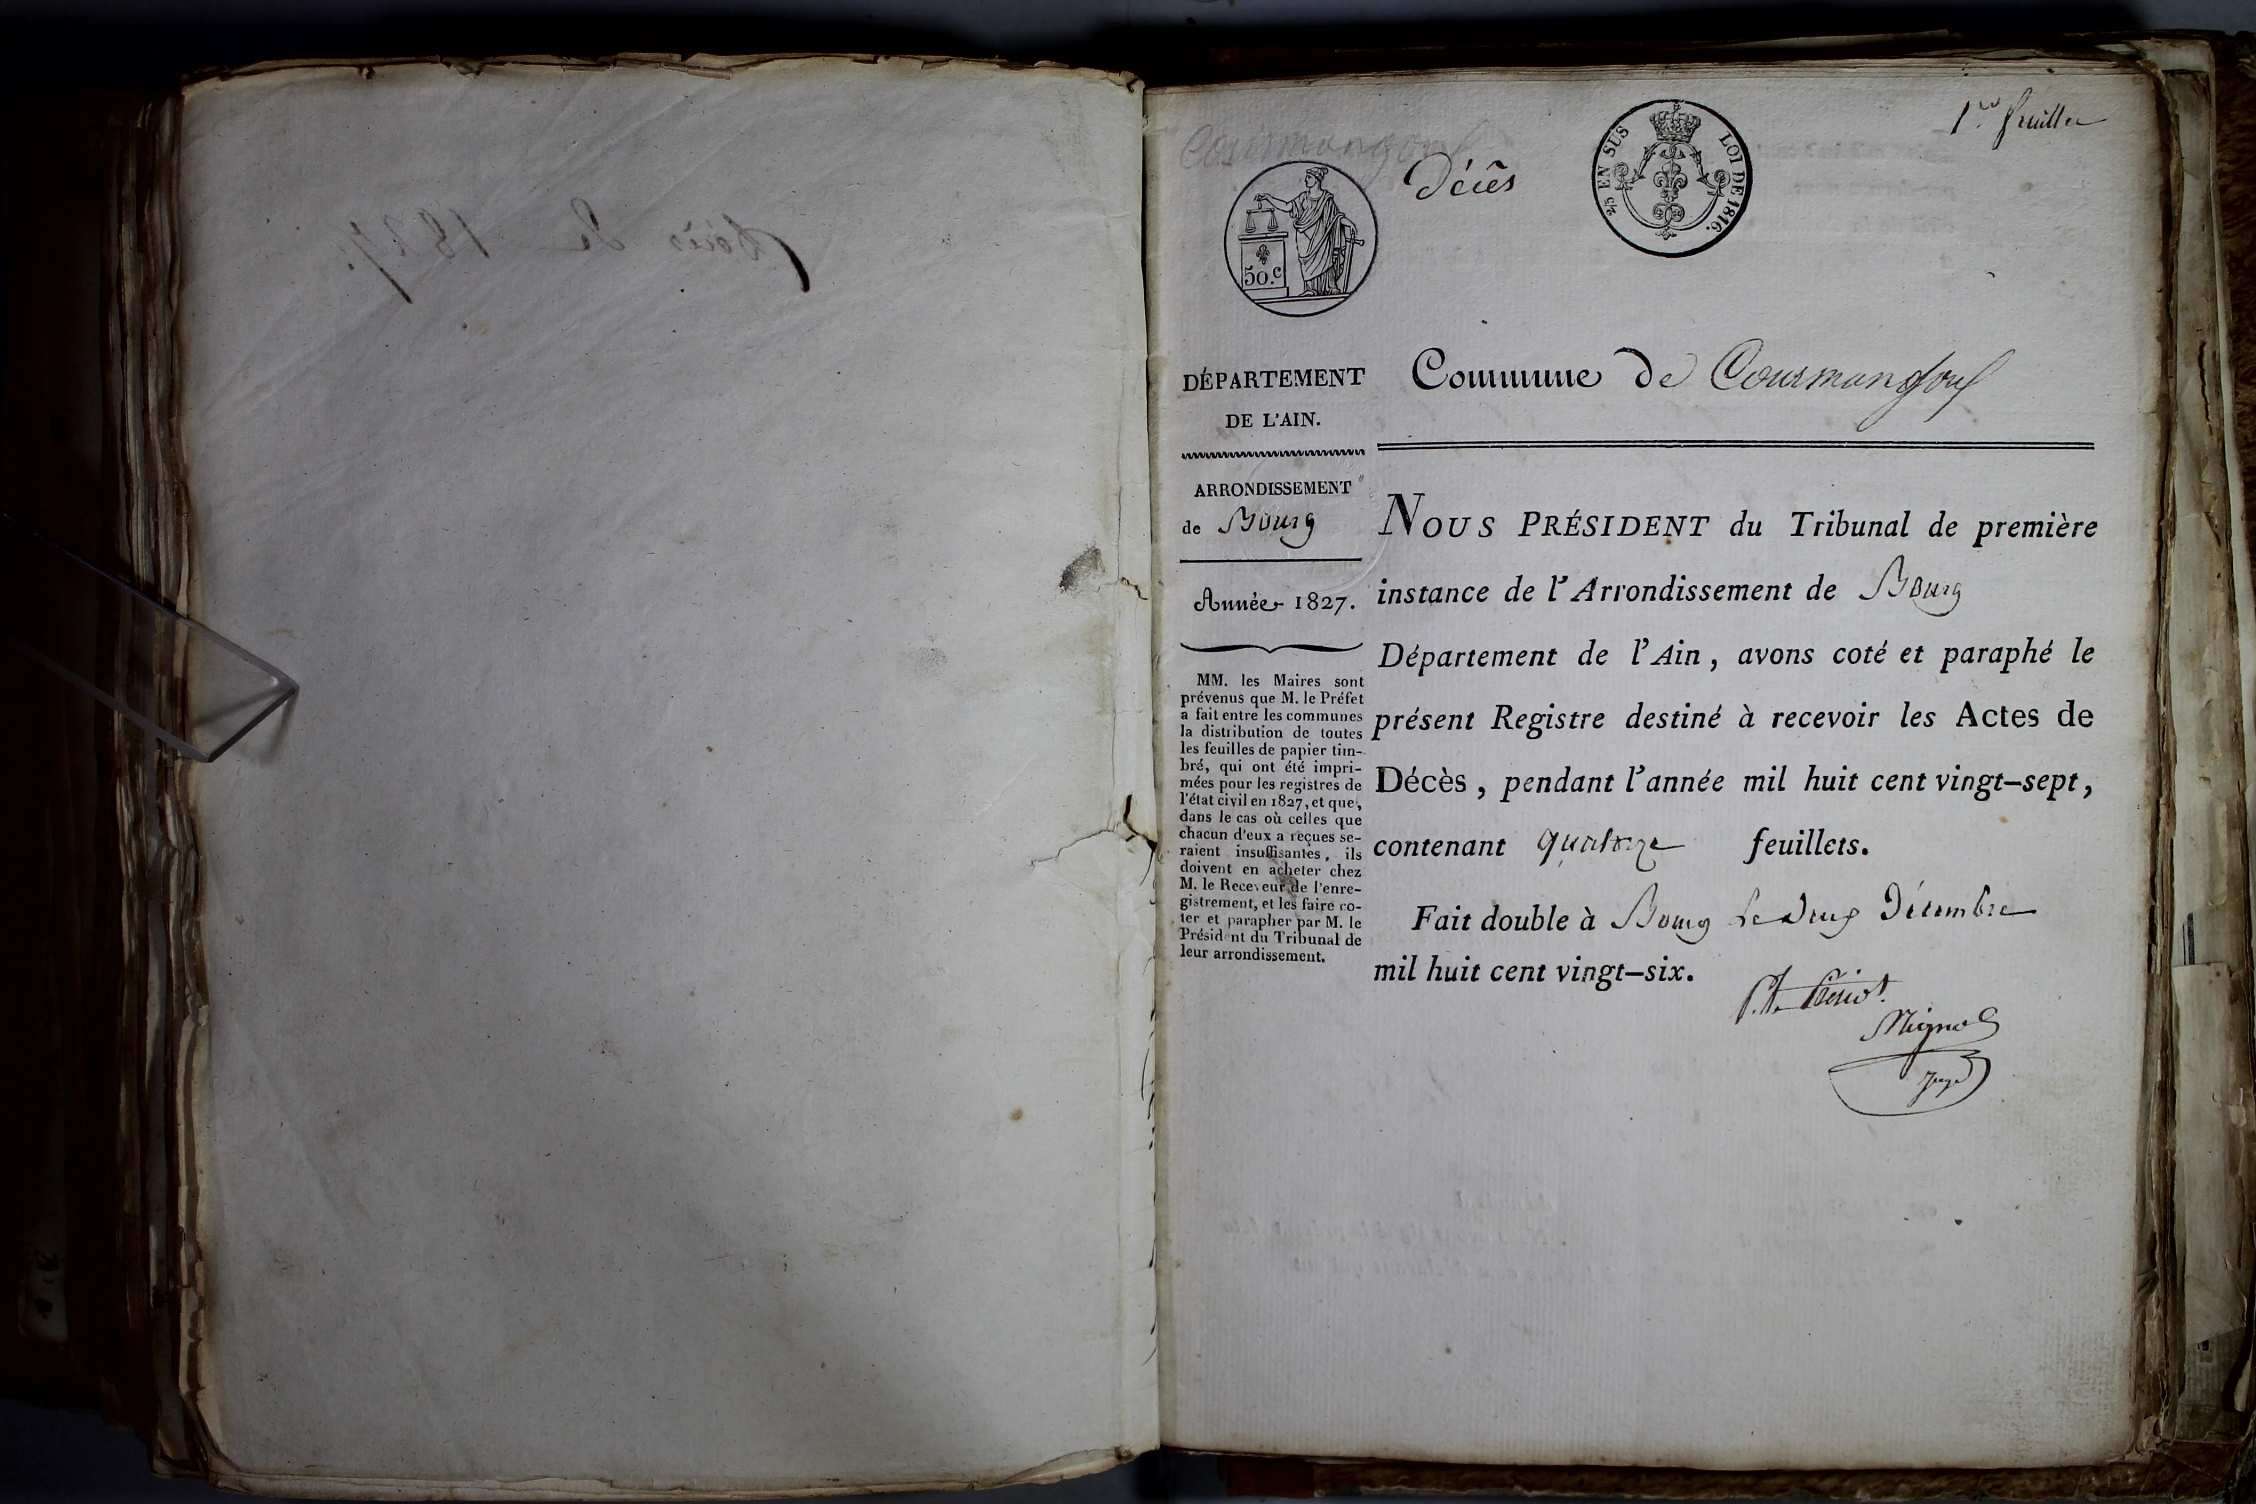 Décès de 1827.
1er feuillet
Courmangoux
Décès
2/5 EN SUS
LOI DE 1816.
50.c
Commune de Courmangoux
DÉPARTEMENT
DE L'AIN.
ARRONDISSEMENT
de Bourg
Année 1827.
MM. les Maires sont
prévenus que M. le Préfet
a fait entre les communes
la distribution de toutes
les feuilles de papier tim-
bré, qui ont été impri-
mées pour les registres de
l'état civil en 1827, et que,
dans le cas où celles que
chacun d'eux a reçues se-
raient insuffisantes, ils
doivent en acheter chez
M. le Receveur de l'enre-
gistrement, et les faire co-
ter et parapher par M. le
Président du Tribunal de
leur arrondissement.
NOUS PRÉSIDENT du Tribunal de première
instance de l'Arrondissement de Bourg
Département de l'Ain, avons coté et paraphé le
présent Registre destiné à recevoir les Actes de
Décès, pendant l'année mil huit cent vingt-sept,
contenant quatorze feuillets.
Fait double à Bourg Le deux Décembre
mil huit cent vingt-six.
Mignot
Juge